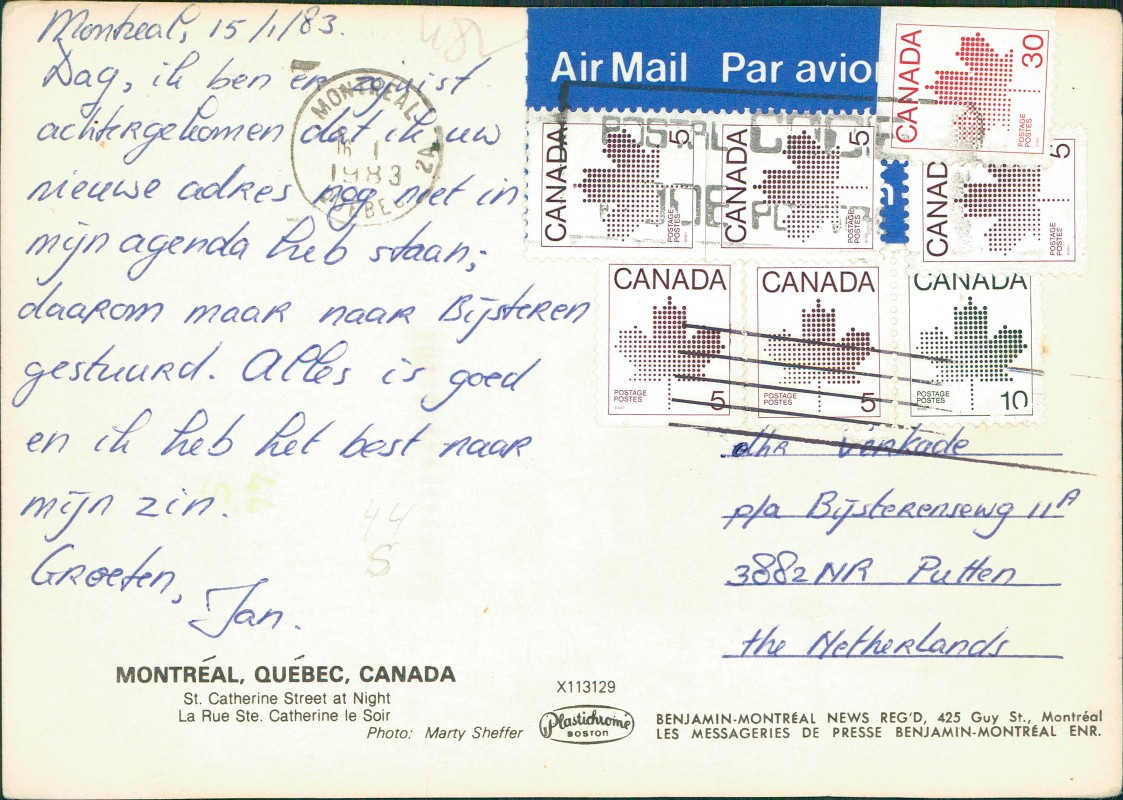 Montreal, 15/1/83.
Dag, ik ben er zojuist
achtergekomen dat ik uw
nieuwe adres nog niet in
mijn agenda heb staan;
daarom maar naar Bijsteren
gestuurd. Alles is goed
en ik heb het best naar
mijn zin.
Groeten,
Jan.
482
44
S
MONTREAL
15 I
1983
QUEBEC
2A
Air Mail Par avion
CANADA 30
POSTAGE
POSTES
CANADA 5
POSTAGE
POSTES
CANADA 5
POSTAGE
POSTES
CANAD 5
POSTAGE
POSTES
POSTAL CODE
CANADA
POSTAGE
POSTES
5
CANADA
POSTAGE
POSTES
5
CANADA
POSTAGE
POSTES
10
dhr Verkade
p/a Bijsterenseweg 11A
3882 NR Putten
the Netherlands
MONTRÉAL, QUÉBEC, CANADA
St. Catherine Street at Night
La Rue Ste. Catherine le Soir
Photo: Marty Sheffer
X113129
Plastichrome
BOSTON
BENJAMIN-MONTRÉAL NEWS REG'D, 425 Guy St., Montréal
LES MESSAGERIES DE PRESSE BENJAMIN-MONTRÉAL ENR.